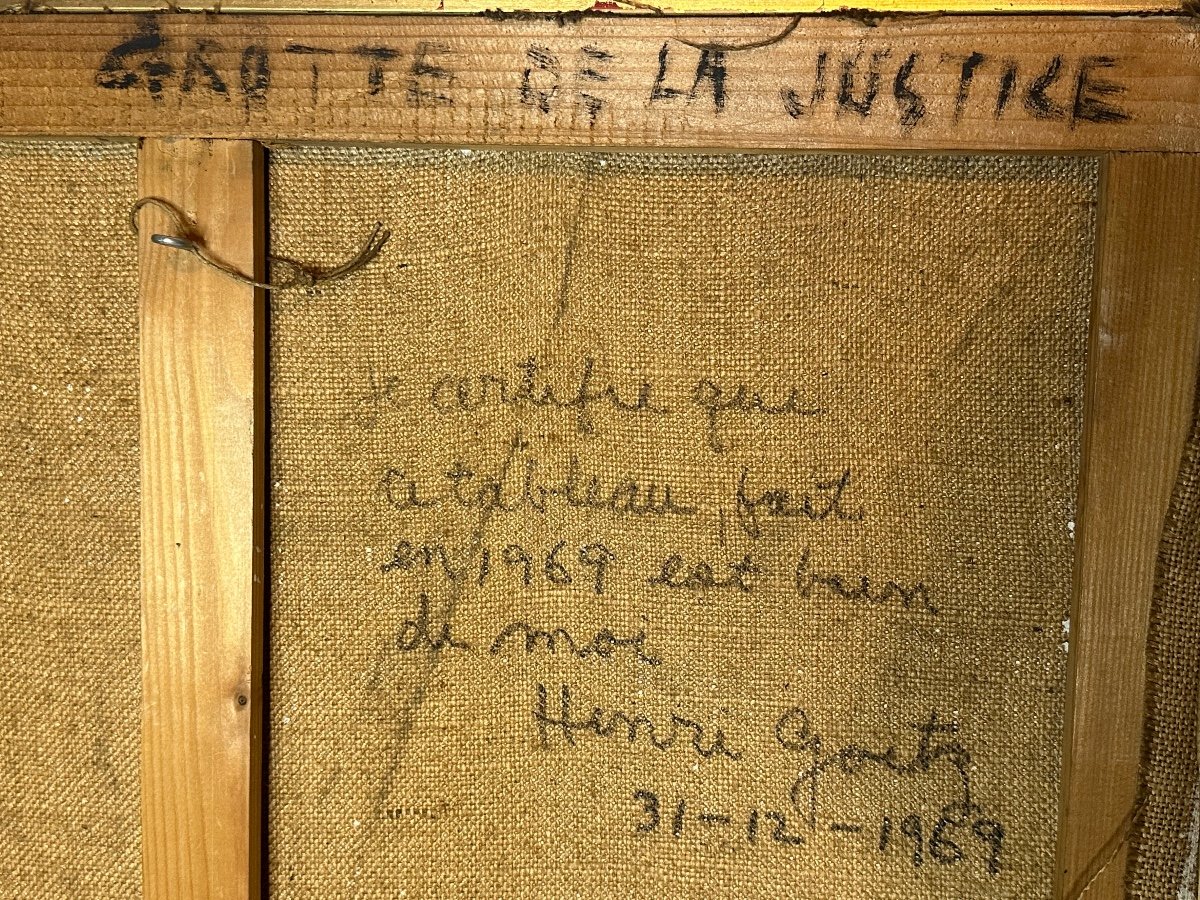 GROTTE DE LA JUSTICE
Je certifie que
ce tableau, fait
en 1969 est bien
de moi
Henri Goetz
31-12-1969